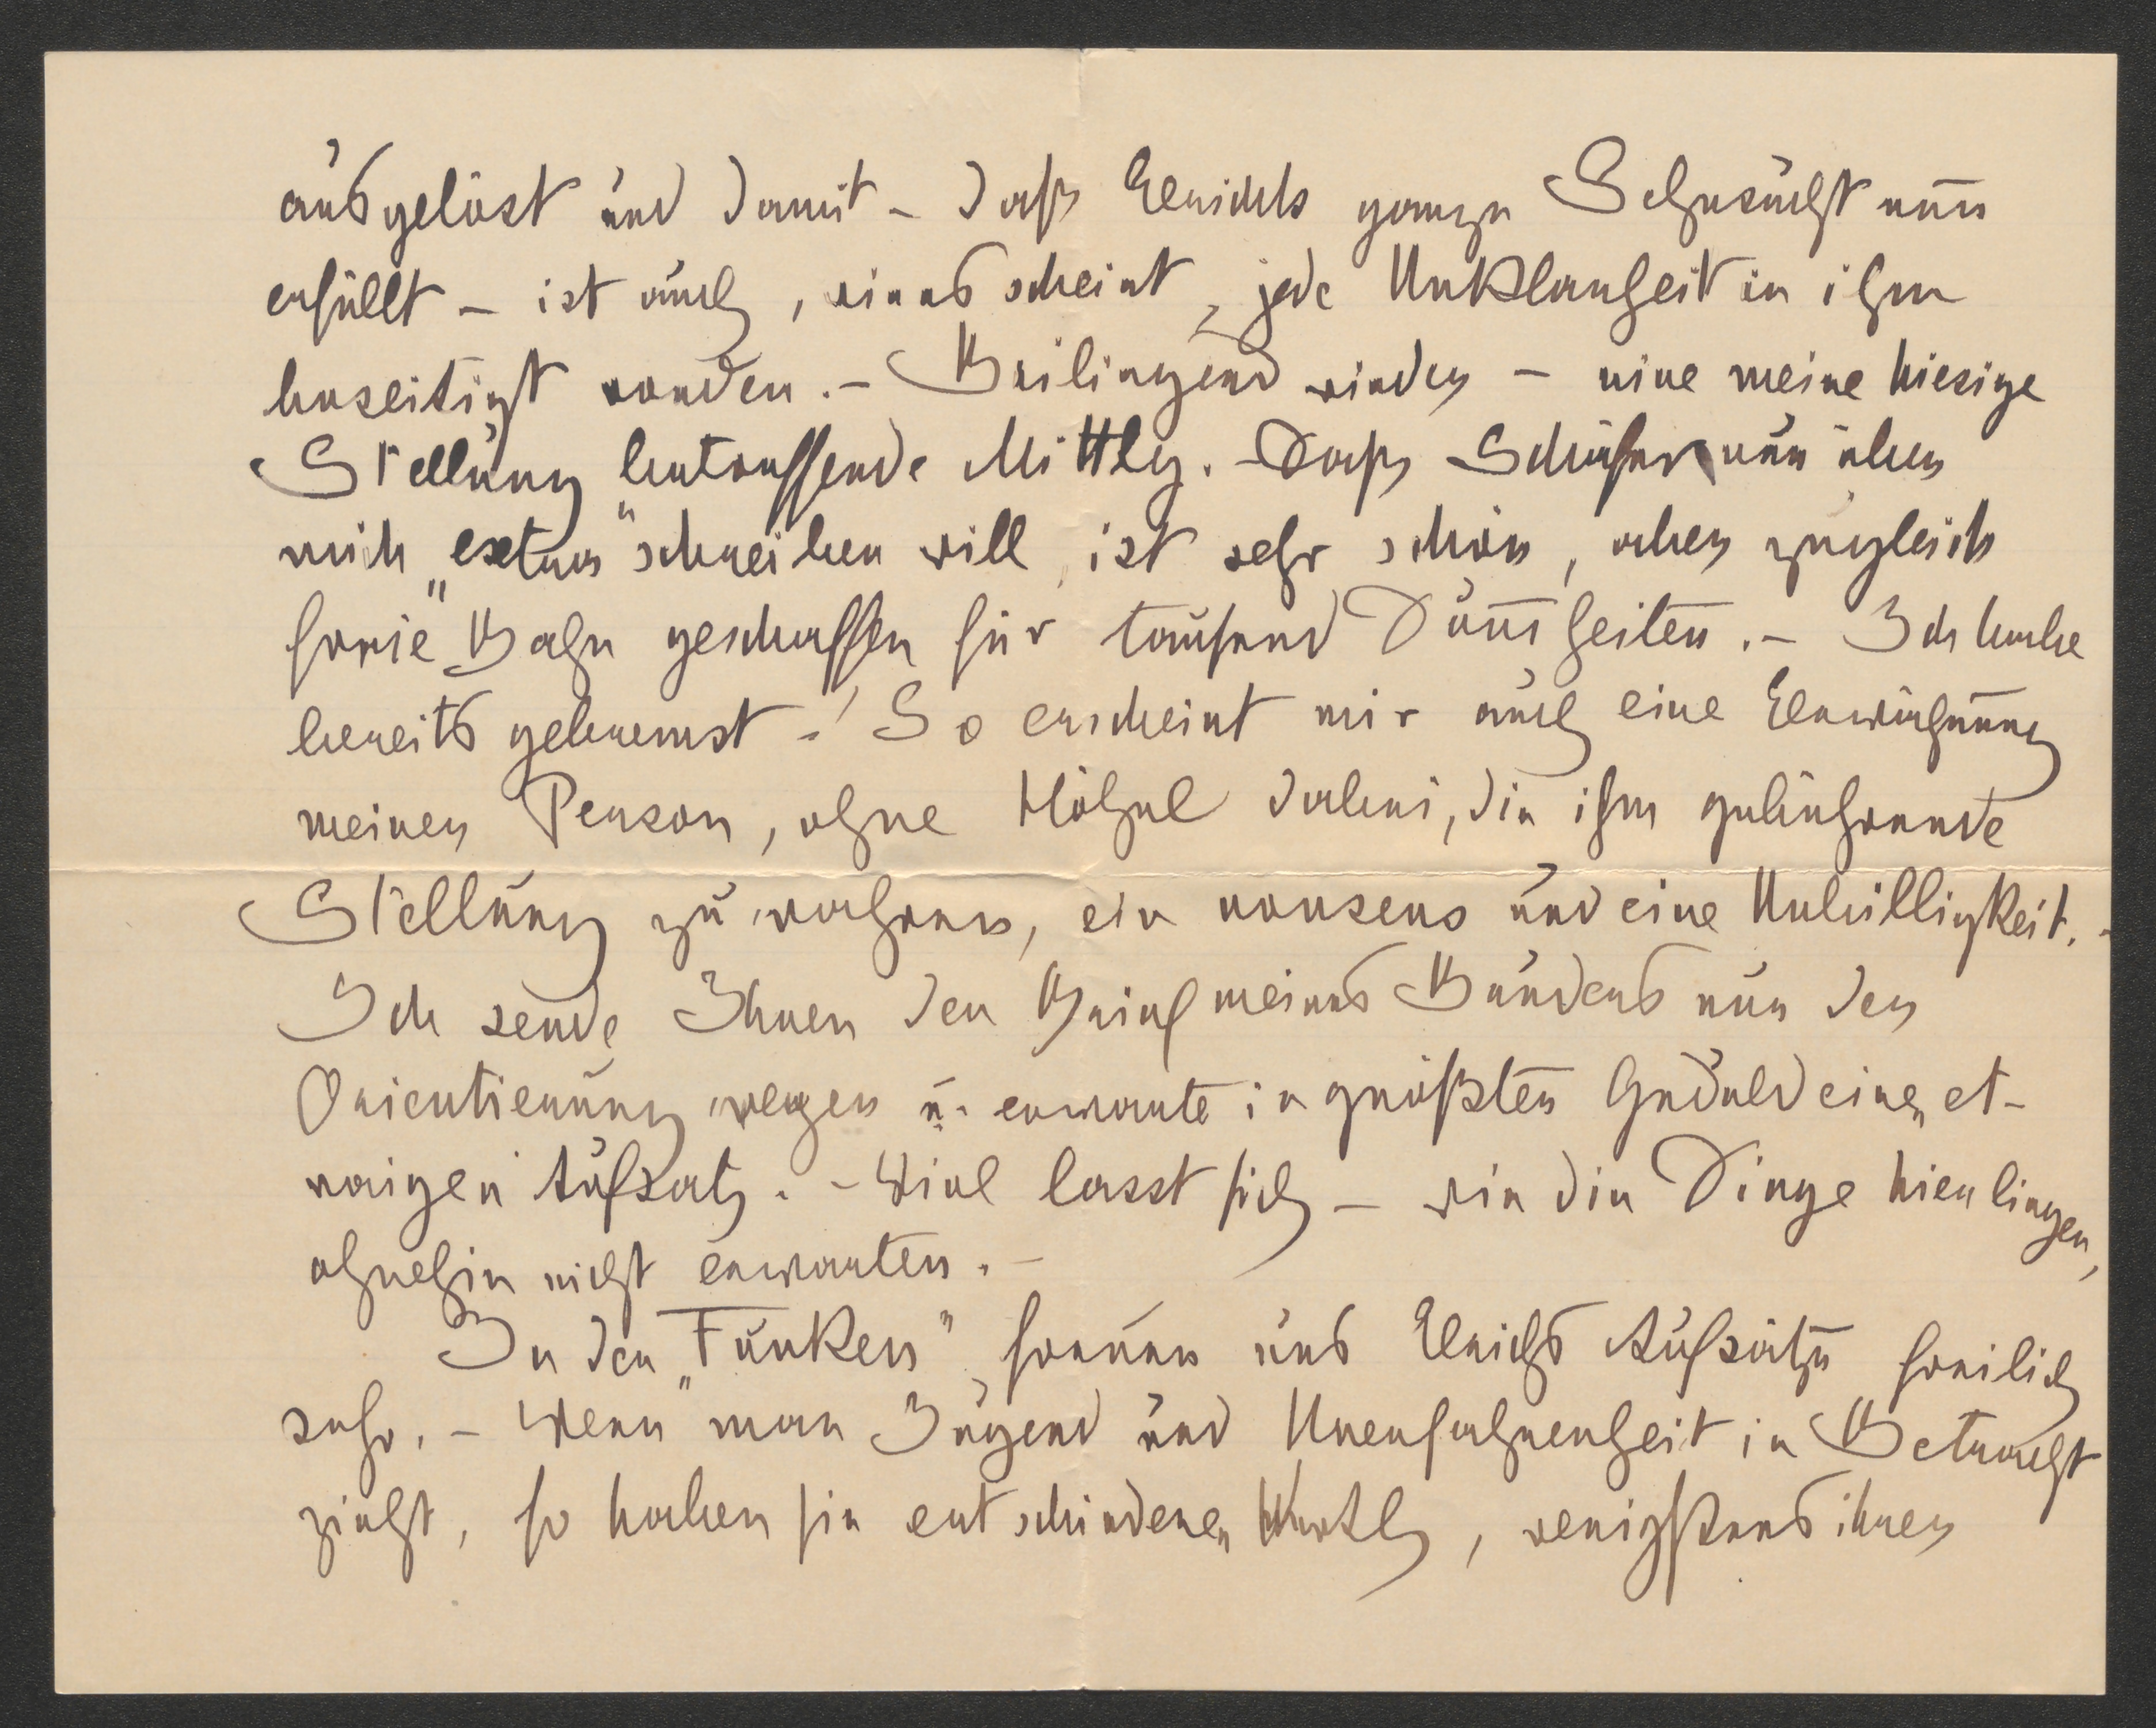 ausgelöst und damit – daß Erichs ganze Sehnsucht nun
erfüllt – ist auch, wie es scheint, jede Unklarheit in ihm
beseitigt worden. – Beiliegend wieder – eine meine hiesige
Stellung betreffende Mittlg. – Daß Schäfer nun über
mich „extra" schreiben will, ist sehr schön, aber zugleich
freie Bahn geschaffen für tausend Dummheiten. – Ich habe
bereits gebremst. – So erscheint mir auch eine Erwähnung
meiner Person, ohne Hölzel dabei, die ihm gebührende
Stellung zu wahren, ein nonsens und eine Unbilligkeit. –
Ich sende Ihnen den Brief meines Bruders nur der
Orientierung wegen u. erwarte in größter Geduld einen et-
waigen Aufsatz. – Viel lasst sich – wie die Dinge hier liegen,
ohnehin nicht erwarten. –
In den „Funken" freuen uns Erichs Aufsätze freilich
sehr. – Wenn man Jugend und Unerfahrenheit in Betracht
zieht, so haben sie entschiedenen Werth, wenigstens ihren